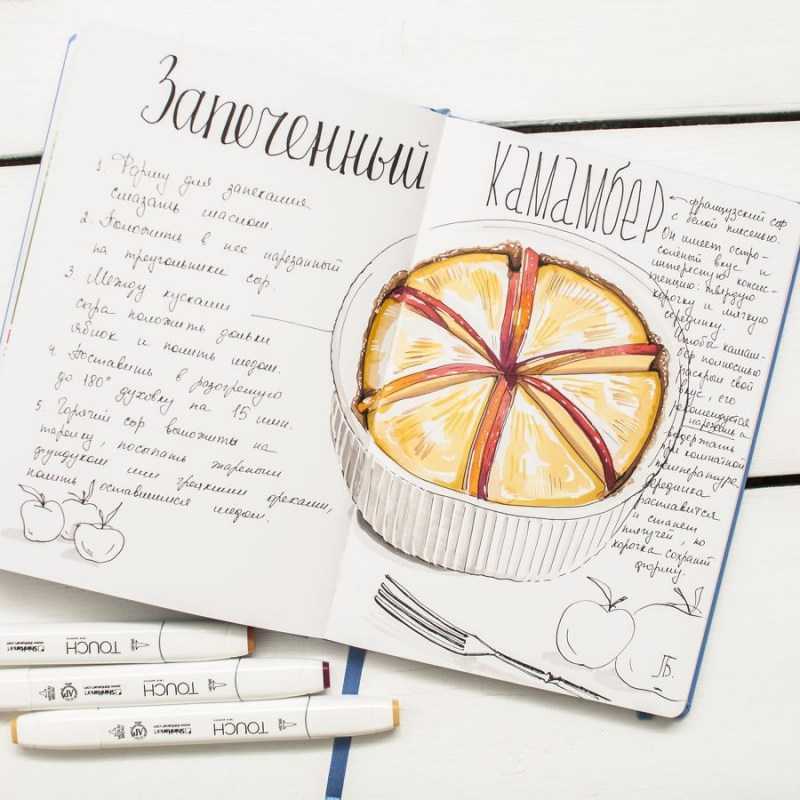 Запеченный
камамбер
1. Форму для запекания
смазать маслом.
2. Положить в нее нарезанный
на треугольники сыр.
3. Между кусками
сыра положить дольки
яблок и полить медом.
4. Поставить в разогретую
до 180° духовку на 15 мин.
5. Горячий сыр выложить на
тарелку, посыпать жареным
фундуком или грецкими орехами,
полить оставшимся медом.
французский сыр
с белой плесенью.
Он имеет остро-
солёный вкус и
интересную консис-
тенцию: твердую
корочку и мягкую
середину.
Чтобы камам-
бер полностью
раскрыл свой
вкус, его
рекомендуется
нарезать и
подержать
при комнатной
температуре.
Серединка
расплавится
и станет
тягучей, но
корочка сохранит
форму.
ЛБ.
TOUCH
ShinHanart
TOUCH
ShinHanart
TOUCH
ShinHanart